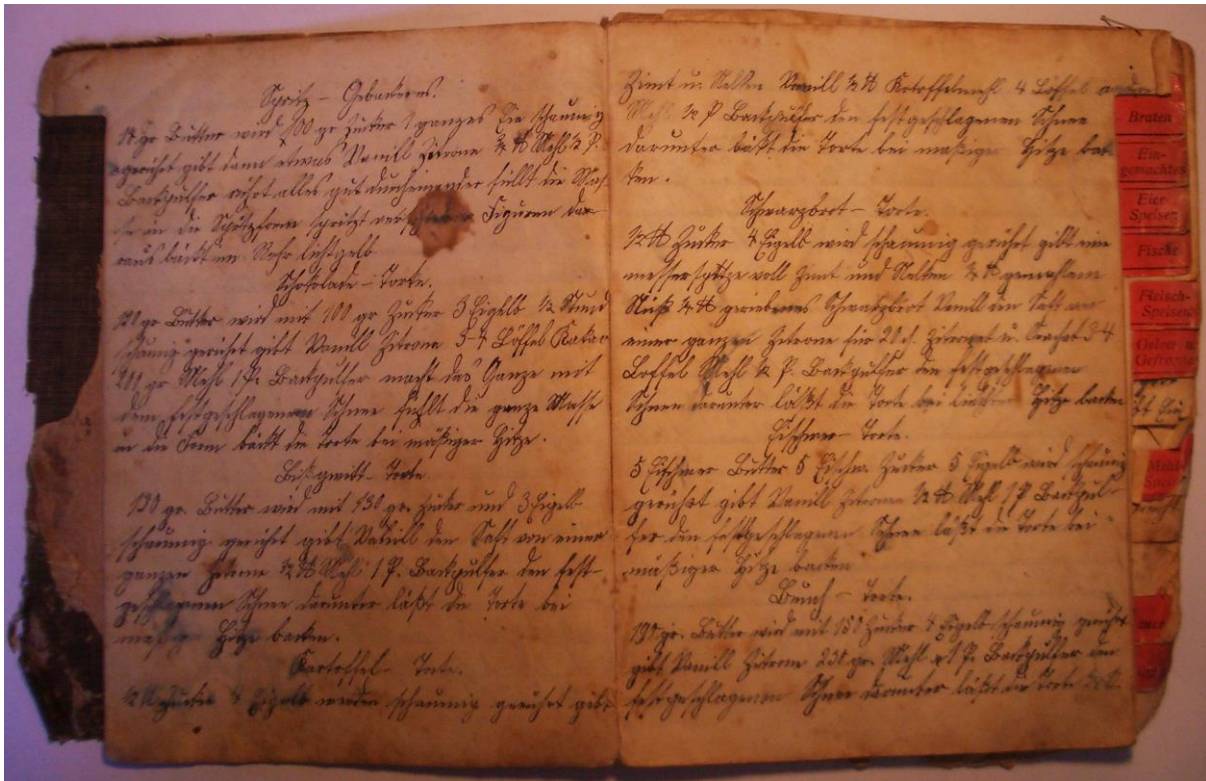 Spritz – Gebackenes.
gr Butter wird 100 gr Zucker ganzes Ei schaumig
gerührt gibt dann etwas Vanill Zitrone ½ ℔ Mehl ½ P.
Backpulfer rührt alles gut durcheinander füllt die Mas-
se in die spritzt Figuren dar-
raus bäckt im Rohr lichtgelb
Schokolade – Torte.
120 gr Butter wird mit 100 gr Zucker 3 Eigelb ½ Stund
schaumig gerührt gibt Vanill Zitrone 3-4 Löffel Kakao
200 gr Mehl 1 P. Backpulfer macht das Ganze mit
dem festgeschlagenen Schnee fühlt die ganze Masse
in die Form bäckt die Torte bei mäßiger Hitze.
Torte
130 gr. Butter wird mit 130 gr. Zucker und 3 Eigelb
schaumig gerührt gibt Vanill den Saft von einer
ganzen Zitrone ½ ℔ Mehl 1 P. Backpulfer den fest-
geschlagenen Schnee darunter läßt die Torte bei
mäßiger Hitze backen.
Kartoffel – Torte.
½ ℔ Zucker 4 Eigelb werden schaumig gerührt gibt
Zimt u. Nelken Vanill ½ ℔ Kartoffelmehl 4 Löffel
Mehl ½ P Backpulfer den festgeschlagenen Schnee
darunter bäkt die Torte bei mäßiger Hitze bak-
ken.
Schwarzbrot – Torte.
½ ℔ Zucker 4 Eigelb wird schaumig gerührt gibt eine
messerspitze voll Zimt und Nelken ¼ ℔ gemahlene
Nüß ¼ ℔ geriebenes Schwarzbrot Vanill den Saft von
einer ganzen Zitrone für 20 d. Zitronat u. 3-4
Löffel Mehl ½ P. Backpulfer den festgeschlagenen
Schnee darunter läßt die Torte bei Hitze backen
Eischwer – Torte.
5 Eischwer Butter 5 Eischw. Zucker 5 Eigelb wird schaumig
gerührt gibt Vanill Zitrone ½ ℔ Mehl 1 P Backpul-
fer den festgeschlagenen Schnee läßt die Torte bei
mäßiger Hitze backen
Torte.
190 gr. Butter wird mit 150 Zucker 4 Eigelb schaumig gerührt
gibt Vanill Zitrone 230 gr. Mehl 1 P. Backpulfer den
festgeschlagenen Schnee darunter läßt die Torte
Braten
Ein-
gemachtes
Eier-
Speisen
Fische
Fleisch-
Speisen
Gelee u.
Gefrorenes